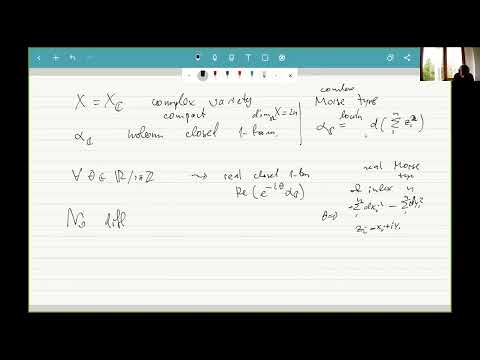 X = X_ℂ complex variety
compact dim_ℝ X = 2n
α_ℂ holom closed 1-form
complex
Morse type
α_ℂ = locally d(∑ z_i²)
∀ θ ∈ ℝ/2πℤ ⇝ real closed 1-form
Re(e^{-iθ} α_ℂ)
real Morse
type
of index n
θ=0
z_i = x_i + i y_i
No diff